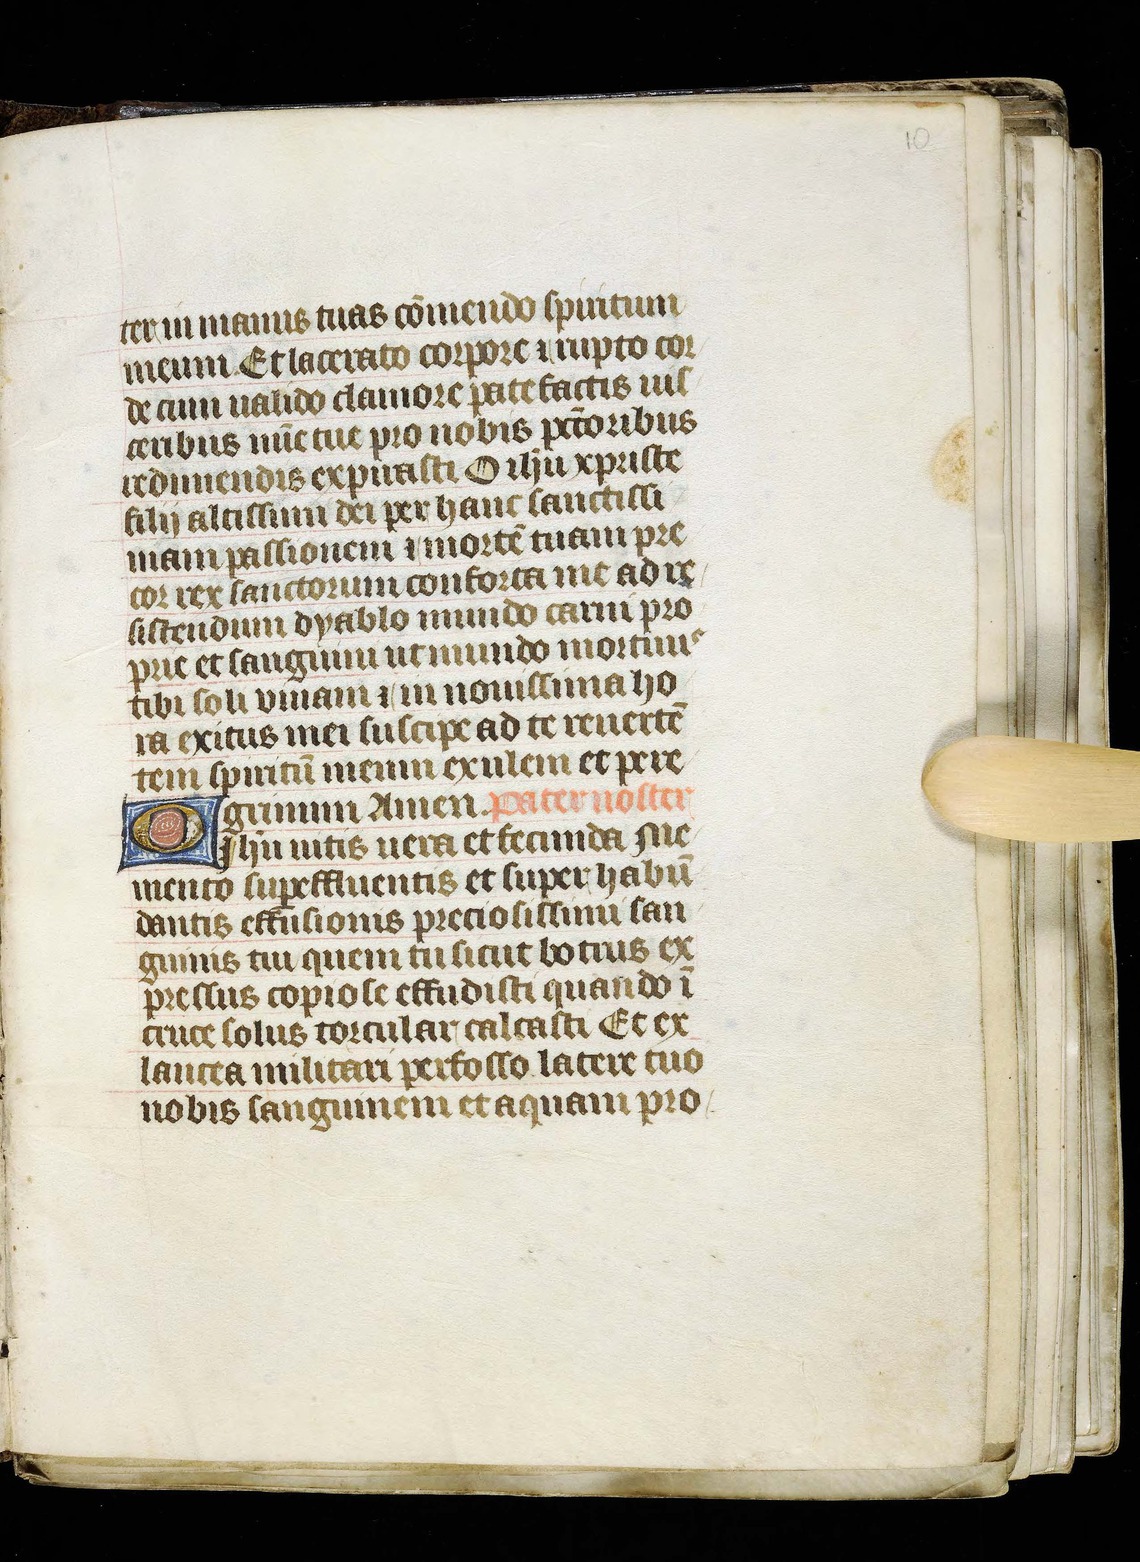 10
ter in manus tuas cōmendo spiritum
meum. Et lacerato corpore ⁊ rupto cor
de cum ualido clamore patefactis uis
ceribus mīe tue pro nobis pctōribus
redimendis expirasti O ihū xpriste
filij altissimi dei per hanc sanctissi
mam passionem ⁊ mortē tuam pre
cor rex sanctorum conforta me ad re
sistendum dyablo mundo carni pro
prie et sanguini ut mundo mortuus
tibi soli viuam ⁊ in nouissima ho
ra exitus mei suscipe ad te reuertē
tem spiritū meum exulem et pere
grinum Amen. Pater noster
O Ihū uitis uera et fecunda Me
mento supeffluentis et super habū
dantis effusionis preciosissimi san
guinis tui quem tu sicut botrus ex
pressus copiose effudisti quando ī
cruce solus torcular calcasti Et ex
lancea militari perfosso latere tuo
nobis sanguinem et aquam pro